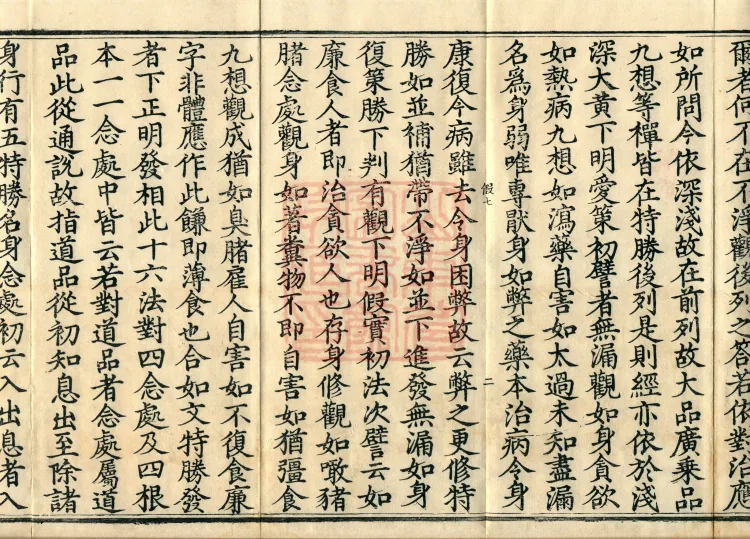 爾者何不在不淨觀後列之答若依對治應
如所問今依深淺故在前列故大品廣乘品
九想等禪皆在特勝後列是則經亦依於淺
深大黃下明愛策初譬者無漏觀如身貪欲
如熱病九想如瀉藥自害如太過未知盡漏
名為身弱唯專猒身如弊之藥本治病今身
假七
二
康復今病雖去今身困弊故云弊之更修特
勝如並補猶帶不淨如並下進發無漏如身
復策勝下判有觀下明假實初法次譬云如
廉食人者即治貪欲人也存身修觀如噉豬
膳念處觀身如著糞物不即自害如猶彊食
九想觀成猶如臭膳雇人自害如不復食廉
字非體應作此鐮即薄食也合如文特勝發
者下正明發相此十六法對四念處及四根
本一一念處中皆云若對道品者念處屬道
品此從通說故指道品從初知息出至除諸
身行有五特勝名身念處初云入出息者入